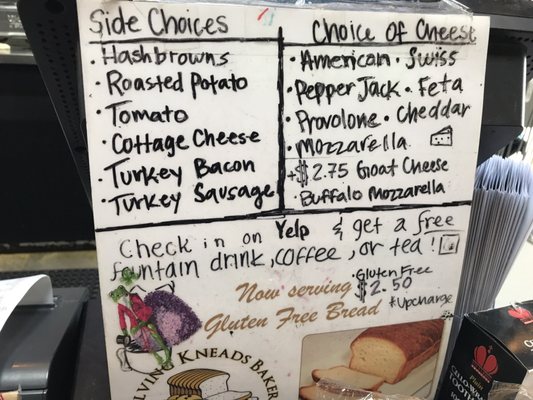 Side Choices
· Hashbrowns
· Roasted Potato
· Tomato
· Cottage Cheese
· Turkey Bacon
· Turkey Sausage
Choice of Cheese
· American · Swiss
· Pepper Jack · Feta
· Provolone · Cheddar
· Mozzarella
+$2.75 Goat Cheese
· Buffalo Mozzarella
Check in on Yelp & get a free
fountain drink, coffee, or tea!
Now serving
Gluten Free Bread
· Gluten Free
$2.50
*Upcharge
KNEADS BAKER